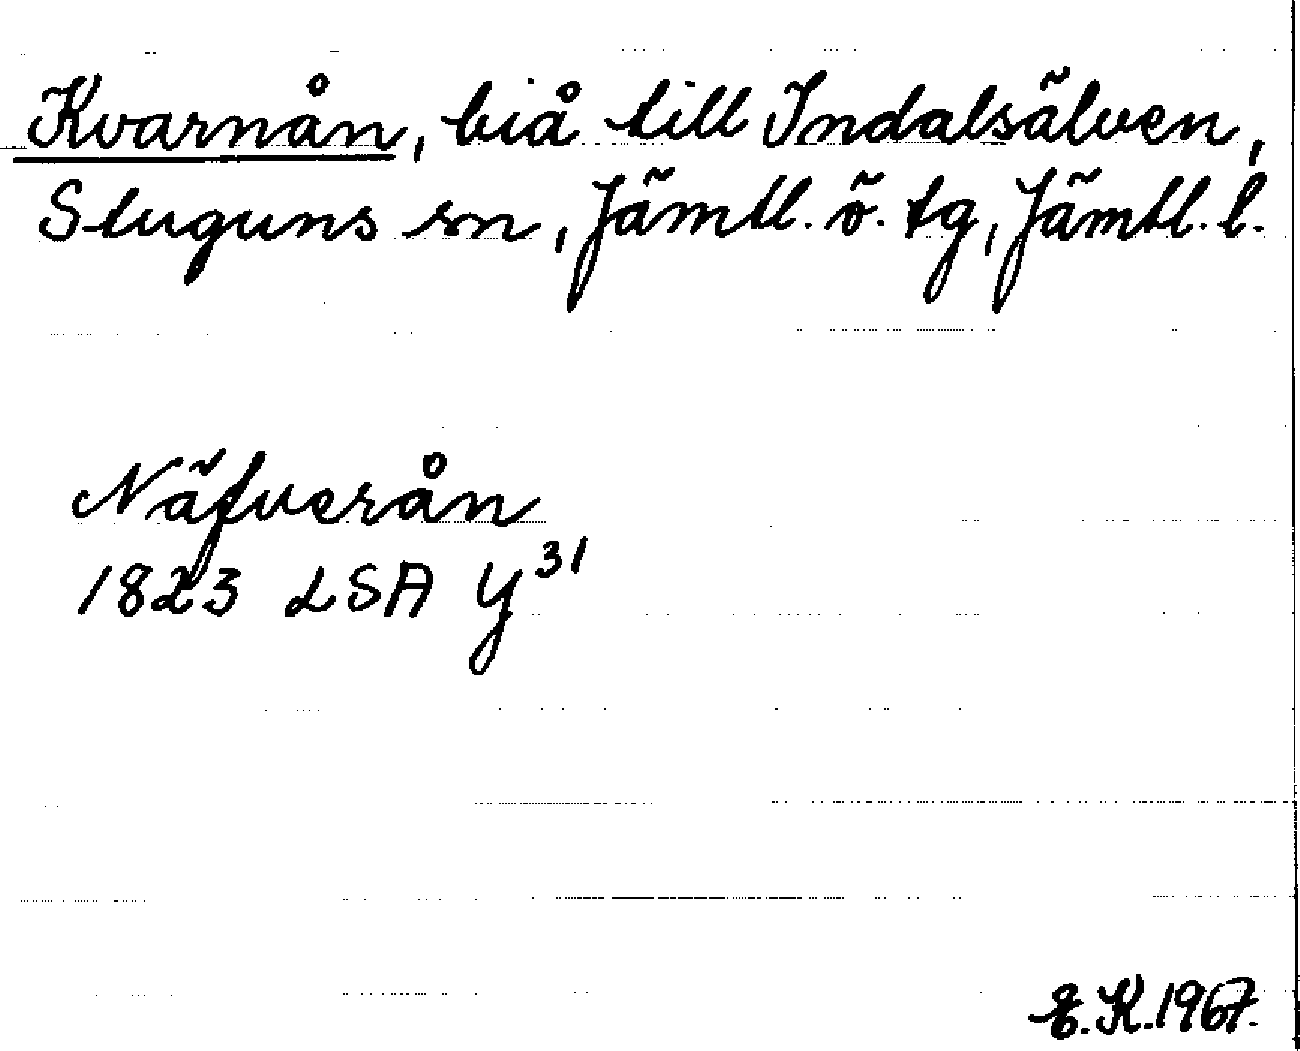 Kvarnån, biå till Indalsälven,
Stuguns sn, Jämtl. ö. tg, Jämtl. l.
Näfverån
1823 LSA Y³¹
E.K.1967.